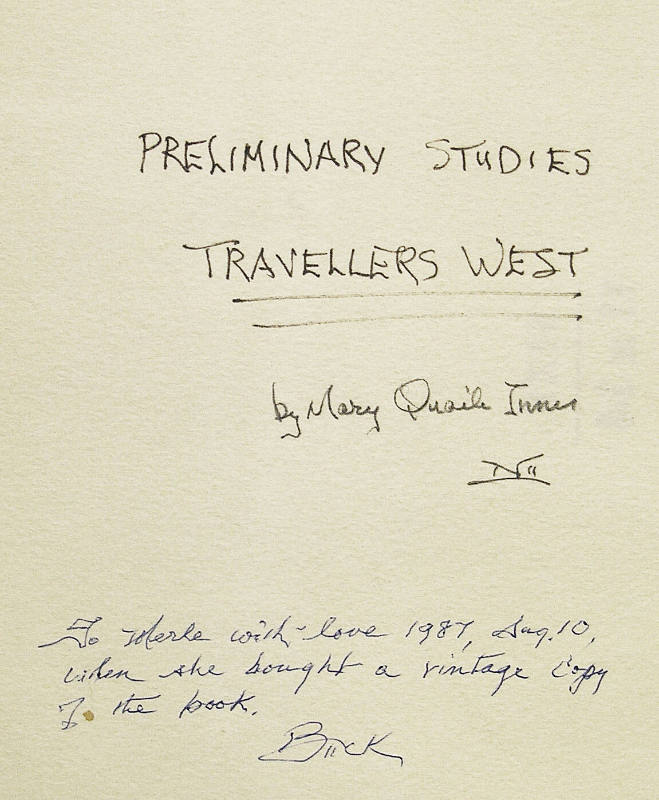 PRELIMINARY STUDIES
TRAVELLERS WEST
by Mary Quaile Innis
To Merle with love 1987, Aug. 10,
when she bought a vintage copy
of the book.